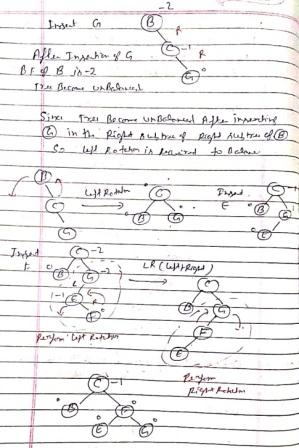 -2
Insert G B
R
C -1
R
After Insertion of G G 0
BF of B is -2
Tree Become unBalanced
Since Tree Become unBalanced After inserting
G in the Right subtree of Right subtree of B
So left Rotation is required to Balance
B Left Rotation C Insert C -1
C B G E B G
G E
Insert C -2
F B G -2 LR (Left+Right) C
R B G
-1 E R F
F 0 E
Perform Left Rotation Perform
Right Rotation
C -1
B F
E G